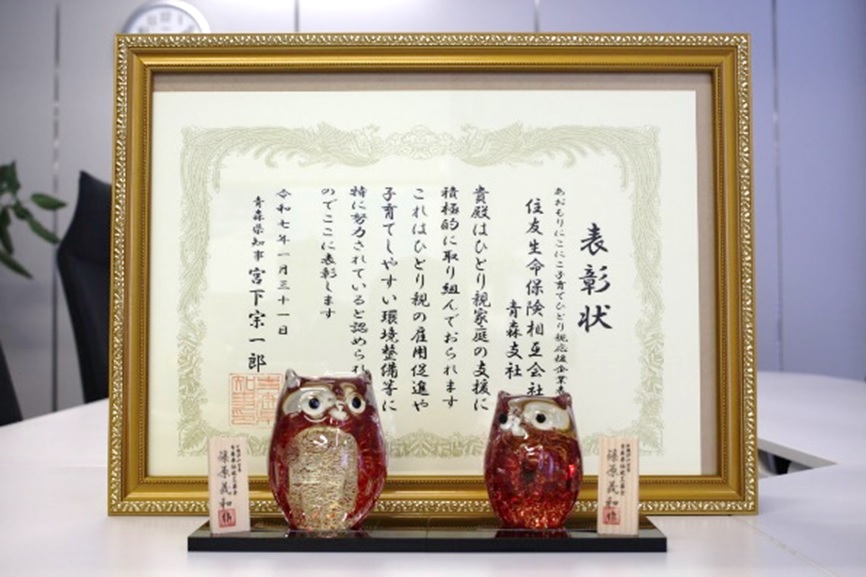 表彰状
あおもりにこにこ子育てひとり親応援企業表
住友生命保険相互会社
青森支社
貴殿はひとり親家庭の支援に
積極的に取り組んでおられます
これはひとり親の雇用促進や
子育てしやすい環境整備等に
特に努力されていると認められ
のでここに表彰します
令和七年一月三十一日
青森県知事 宮下宗一郎
篠原義和
篠原義和